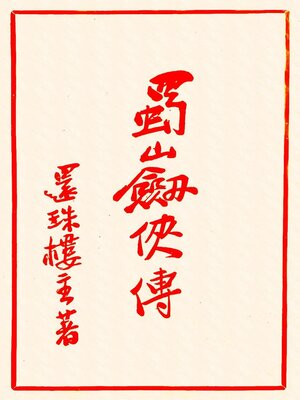 蜀山劍俠傳
還珠樓主著